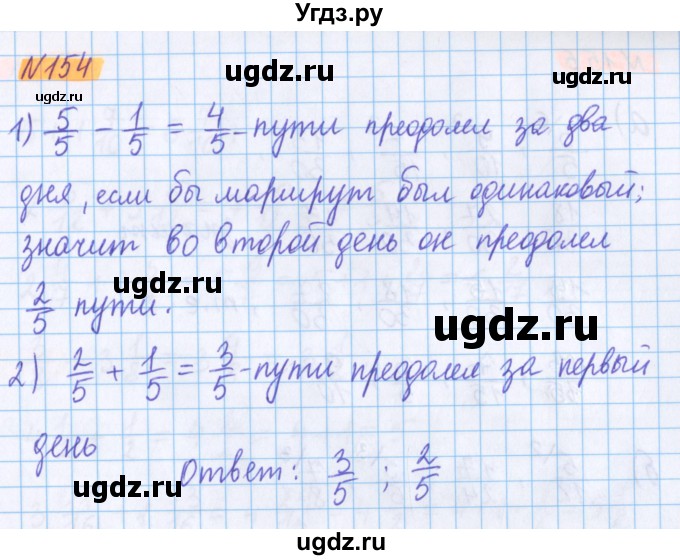 Угдз.ру
N154
ugdz.ru
ugdz.ru
ugdz.ru
1) 5/5 - 1/5 = 4/5 - пути преодолел за два
дня, если бы маршрут был одинаковый;
ugdz.ru
значит во второй день он преодолел
ugdz.ru
2/5 пути.
ugdz.ru
2) 2/5 + 1/5 = 3/5 - пути преодолел за первый
ugdz.ru
день
Ответ: 3/5 ; 2/5
ugdz.ru
ugdz.ru
ugdz.ru